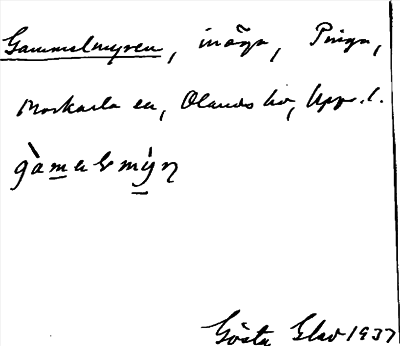 Gammelmyren, inäga, Pinga,
Morkarla sn, Olands hd, Upps. l.
gàmelmýn
Gösta 1937